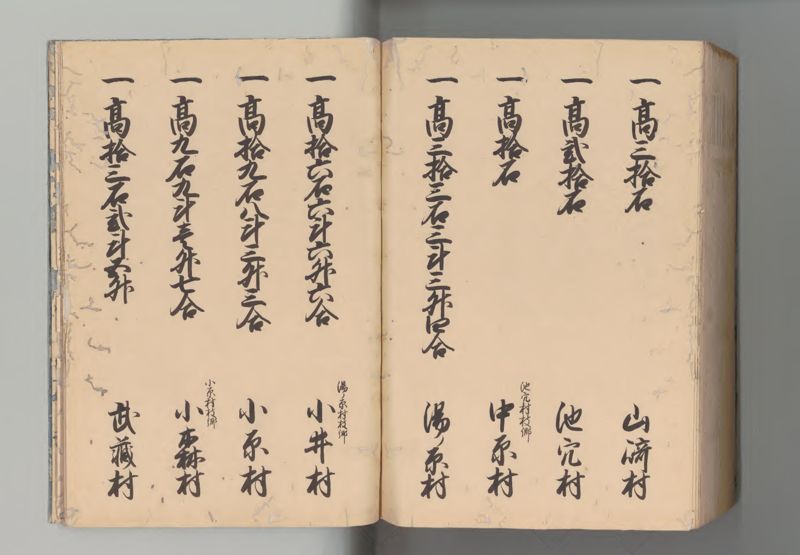 一高三拾石 山崎村
一高弐拾石 池穴村
池穴村枝郷
一高拾石 中原村
一高三拾三石三斗三升四合 湯ノ原村
湯ノ原村枝郷
一高拾六石六斗六升六合 小井村
一高拾九石八斗三升三合 小原村
小原村枝郷
一高九石九斗壱升七合 小森村
一高拾三石弐斗五升 武蔵村